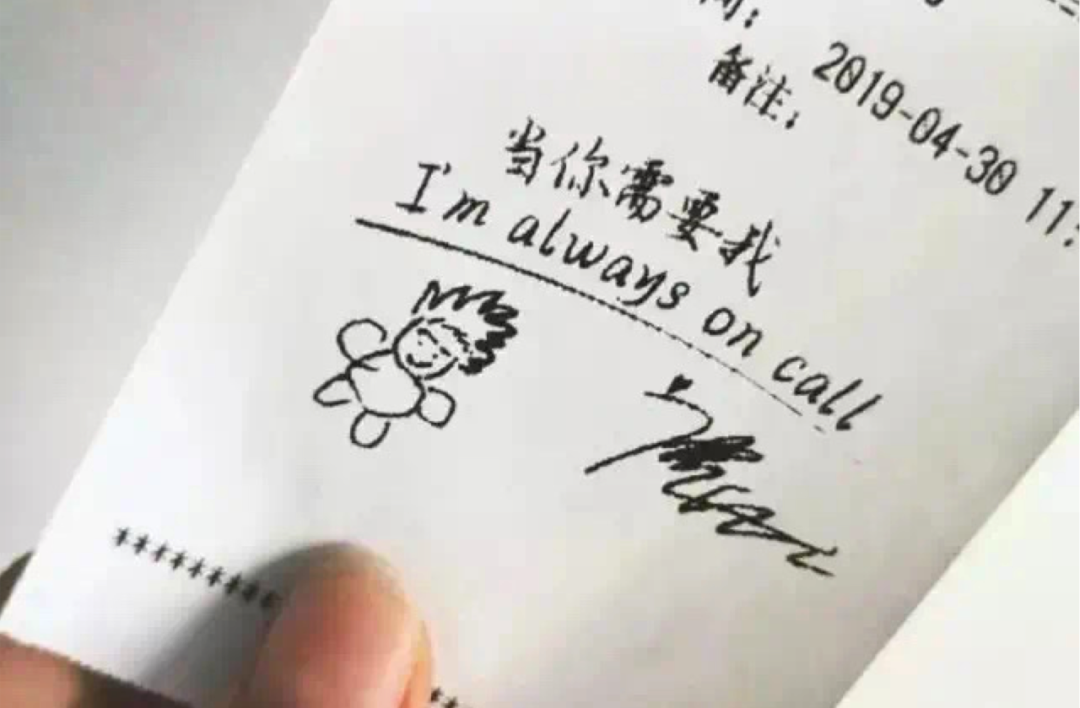 2019-04-30 11:
备注:
当你需要我
I'm always on call
*********
**